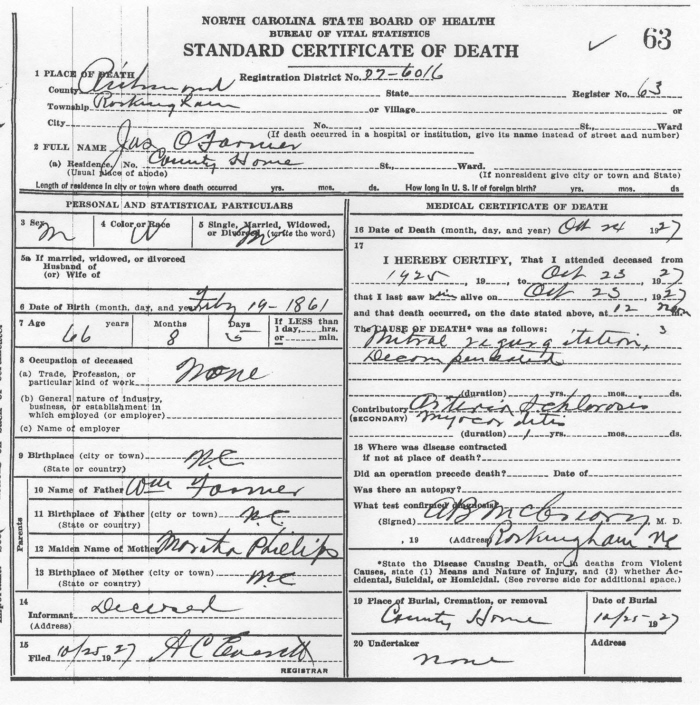 NORTH CAROLINA STATE BOARD OF HEALTH
BUREAU OF VITAL STATISTICS
STANDARD CERTIFICATE OF DEATH
63
1 PLACE OF DEATH
Registration District No. 77-6016
County Richmond State Register No. 63
Township Rockingham or Village or
City No. St., Ward
(If death occurred in a hospital or institution, give its name instead of street and number)
2 FULL NAME Jas O Farmer
(a) Residence, No. County Home St., Ward.
(Usual place of abode) (If nonresident give city or town and State)
Length of residence in city or town where death occurred yrs. mos. ds. How long in U. S. if of foreign birth? yrs. mos. ds.
PERSONAL AND STATISTICAL PARTICULARS
3 Sex M
4 Color or Race W
5 Single, Married, Widowed,
or Divorced (write the word) M
5a If married, widowed, or divorced
Husband of
(or) Wife of
6 Date of Birth (month, day, and year) Feby 19-1861
7 Age 66 years
Months 8
Days 5
If LESS than
1 day, hrs.
or min.
8 Occupation of deceased
(a) Trade, Profession, or
particular kind of work None
(b) General nature of industry,
business, or establishment in
which employed (or employer)
(c) Name of employer
9 Birthplace (city or town) N.C
(State or country)
Parents
10 Name of Father Wm Farmer
11 Birthplace of Father (city or town) N.C
(State or country)
12 Maiden Name of Mother Phillips
13 Birthplace of Mother (city or town) N.C
(State or country)
14
Informant Decesed
(Address)
15
Filed 10/25 1927 A C Everett
REGISTRAR
MEDICAL CERTIFICATE OF DEATH
16 Date of Death (month, day, and year) Oct 24 1927
17
I HEREBY CERTIFY, That I attended deceased from
1925, 19 , to Oct 23 , 1927
that I last saw him alive on Oct 23 , 1927
and that death occurred, on the date stated above, at 12 noon
The CAUSE OF DEATH* was as follows: 3
Mitral regurgitation,
Decompensated
(duration) yrs. mos. ds.
Contributory Arterio Schlorosis
(SECONDARY) Myocarditis
(duration) 1 yrs. mos. ds.
18 Where was disease contracted
if not at place of death?
Did an operation precede death? Date of
Was there an autopsy?
What test confirmed diagnosis?
(Signed) , M. D.
, 19 (Address) Rockingham NC
*State the Disease Causing Death, or in deaths from Violent
Causes, state (1) Means and Nature of Injury, and (2) whether Ac-
cidental, Suicidal, or Homicidal. (See reverse side for additional space.)
19 Place of Burial, Cremation, or removal
County Home
Date of Burial
10/25-1927
20 Undertaker
none
Address